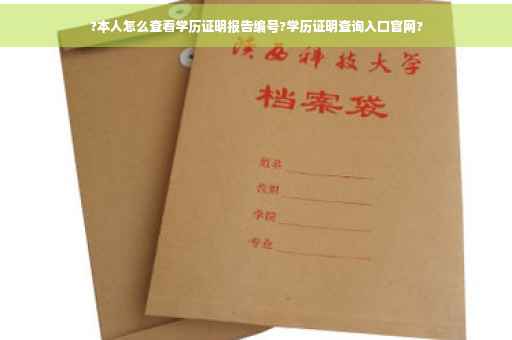 ?本人怎么查看学历证明报告编号?学历证明查询入口官网?
陕西科技大学
档案袋
姓名
学院
专业